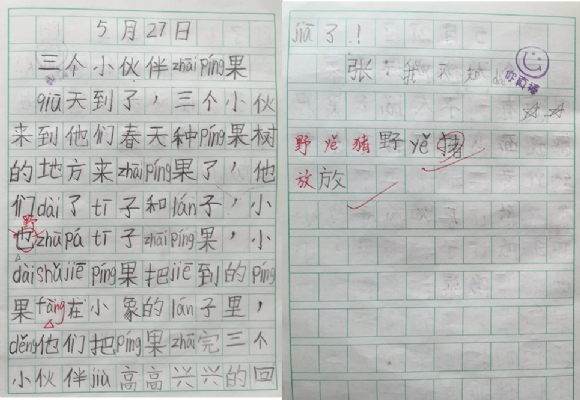 5月27日
三个小伙伴zhāi píng果
qiū天到了，三个小伙
来到他们春天种píng果树
的地方来zhāi píng果了，他
们dài了tī子和lán子，小
野
也zhū pá tī子zhāi píng果，小
dài shǔ jiē píng果把jiē到的píng
果fàng在小象的lán子里，
děng他们把píng果zhāi完三个
小伙伴jiù高高兴兴的回
jiā了！
野 猪野yě猪
放放